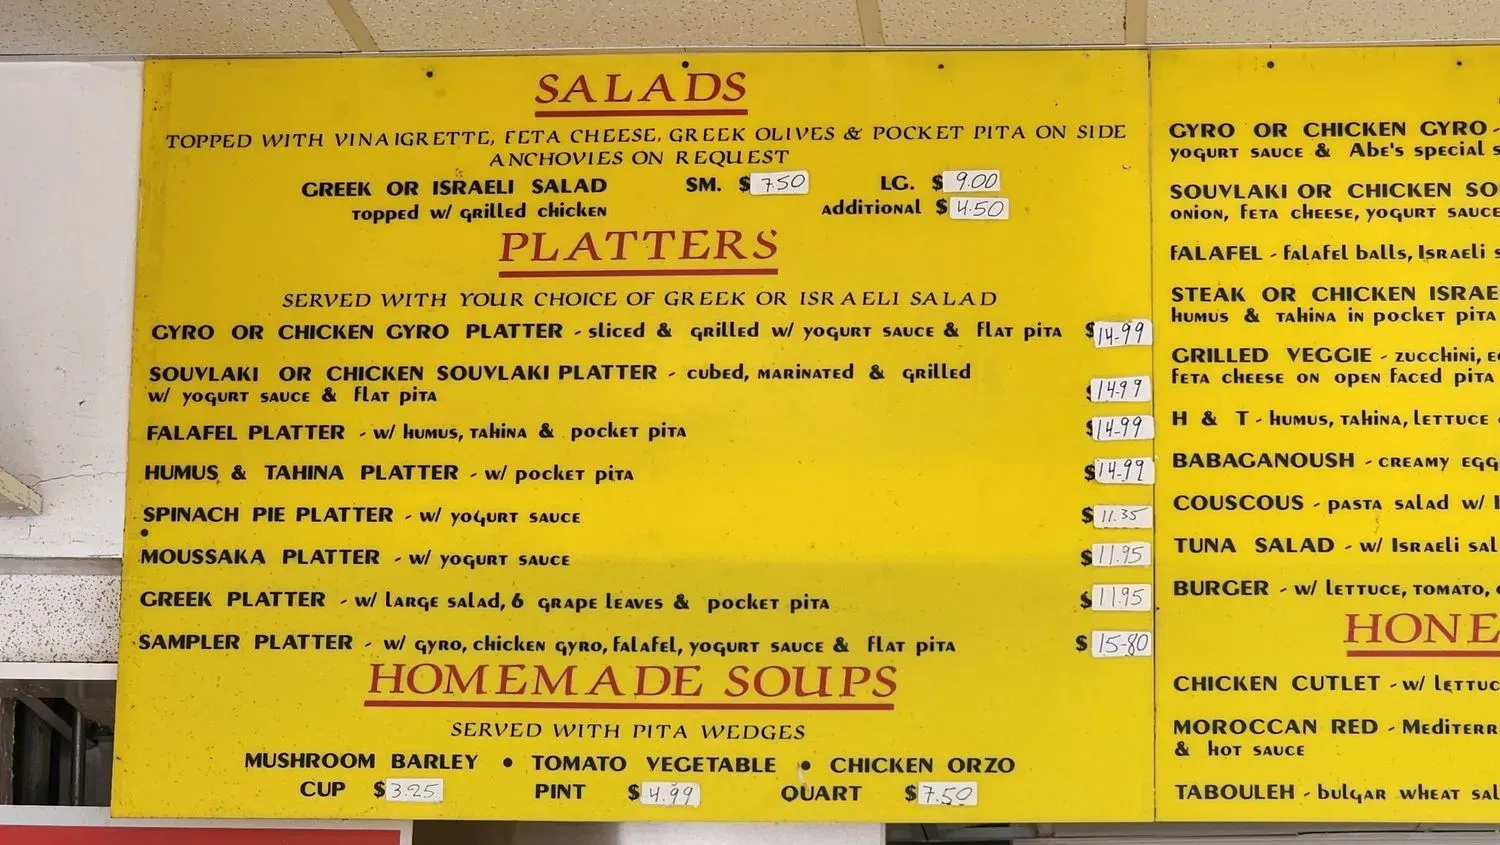 SALADS
TOPPED WITH VINAIGRETTE, FETA CHEESE, GREEK OLIVES & POCKET PITA ON SIDE
ANCHOVIES ON REQUEST
GREEK OR ISRAELI SALAD SM. $7.50 LG. $9.00
TOPPED w/ GRILLED CHICKEN ADDITIONAL $4.50
PLATTERS
SERVED WITH YOUR CHOICE OF GREEK OR ISRAELI SALAD
GYRO OR CHICKEN GYRO PLATTER - SLICED & GRILLED w/ YOGURT SAUCE & FLAT PITA $14-99
SOUVLAKI OR CHICKEN SOUVLAKI PLATTER - CUBED, MARINATED & GRILLED
w/ YOGURT SAUCE & FLAT PITA $1499
FALAFEL PLATTER - w/ HUMUS, TAHINA & POCKET PITA $14-99
HUMUS & TAHINA PLATTER - w/ POCKET PITA $14-99
SPINACH PIE PLATTER - w/ YOGURT SAUCE $11.35
MOUSSAKA PLATTER - w/ YOGURT SAUCE $11.95
GREEK PLATTER - w/ LARGE SALAD, 6 GRAPE LEAVES & POCKET PITA $11.95
SAMPLER PLATTER - w/ GYRO, CHICKEN GYRO, FALAFEL, YOGURT SAUCE & FLAT PITA $15-80
HOMEMADE SOUPS
SERVED WITH PITA WEDGES
MUSHROOM BARLEY • TOMATO VEGETABLE • CHICKEN ORZO
CUP $3.25 PINT $4.99 QUART $7.50
GYRO OR CHICKEN GYRO -
YOGURT SAUCE & Abe's special
SOUVLAKI OR CHICKEN SO
ONION, FETA CHEESE, YOGURT SAUCE
FALAFEL - FALAFEL BALLS, ISRAELI
STEAK OR CHICKEN ISRAE
HUMUS & TAHINA IN POCKET PITA
GRILLED VEGGIE - ZUCCHINI,
FETA CHEESE ON OPEN FACED PITA
H & T - HUMUS, TAHINA, LETTUCE
BABAGANOUSH - CREAMY EGG
COUSCOUS - PASTA SALAD w/
TUNA SALAD - w/ ISRAELI SAL
BURGER - w/ LETTUCE, TOMATO,
HONE
CHICKEN CUTLET - w/ LETTUC
MOROCCAN RED - MEDITERR
& HOT SAUCE
TABOULEH - BULGAR WHEAT SAL